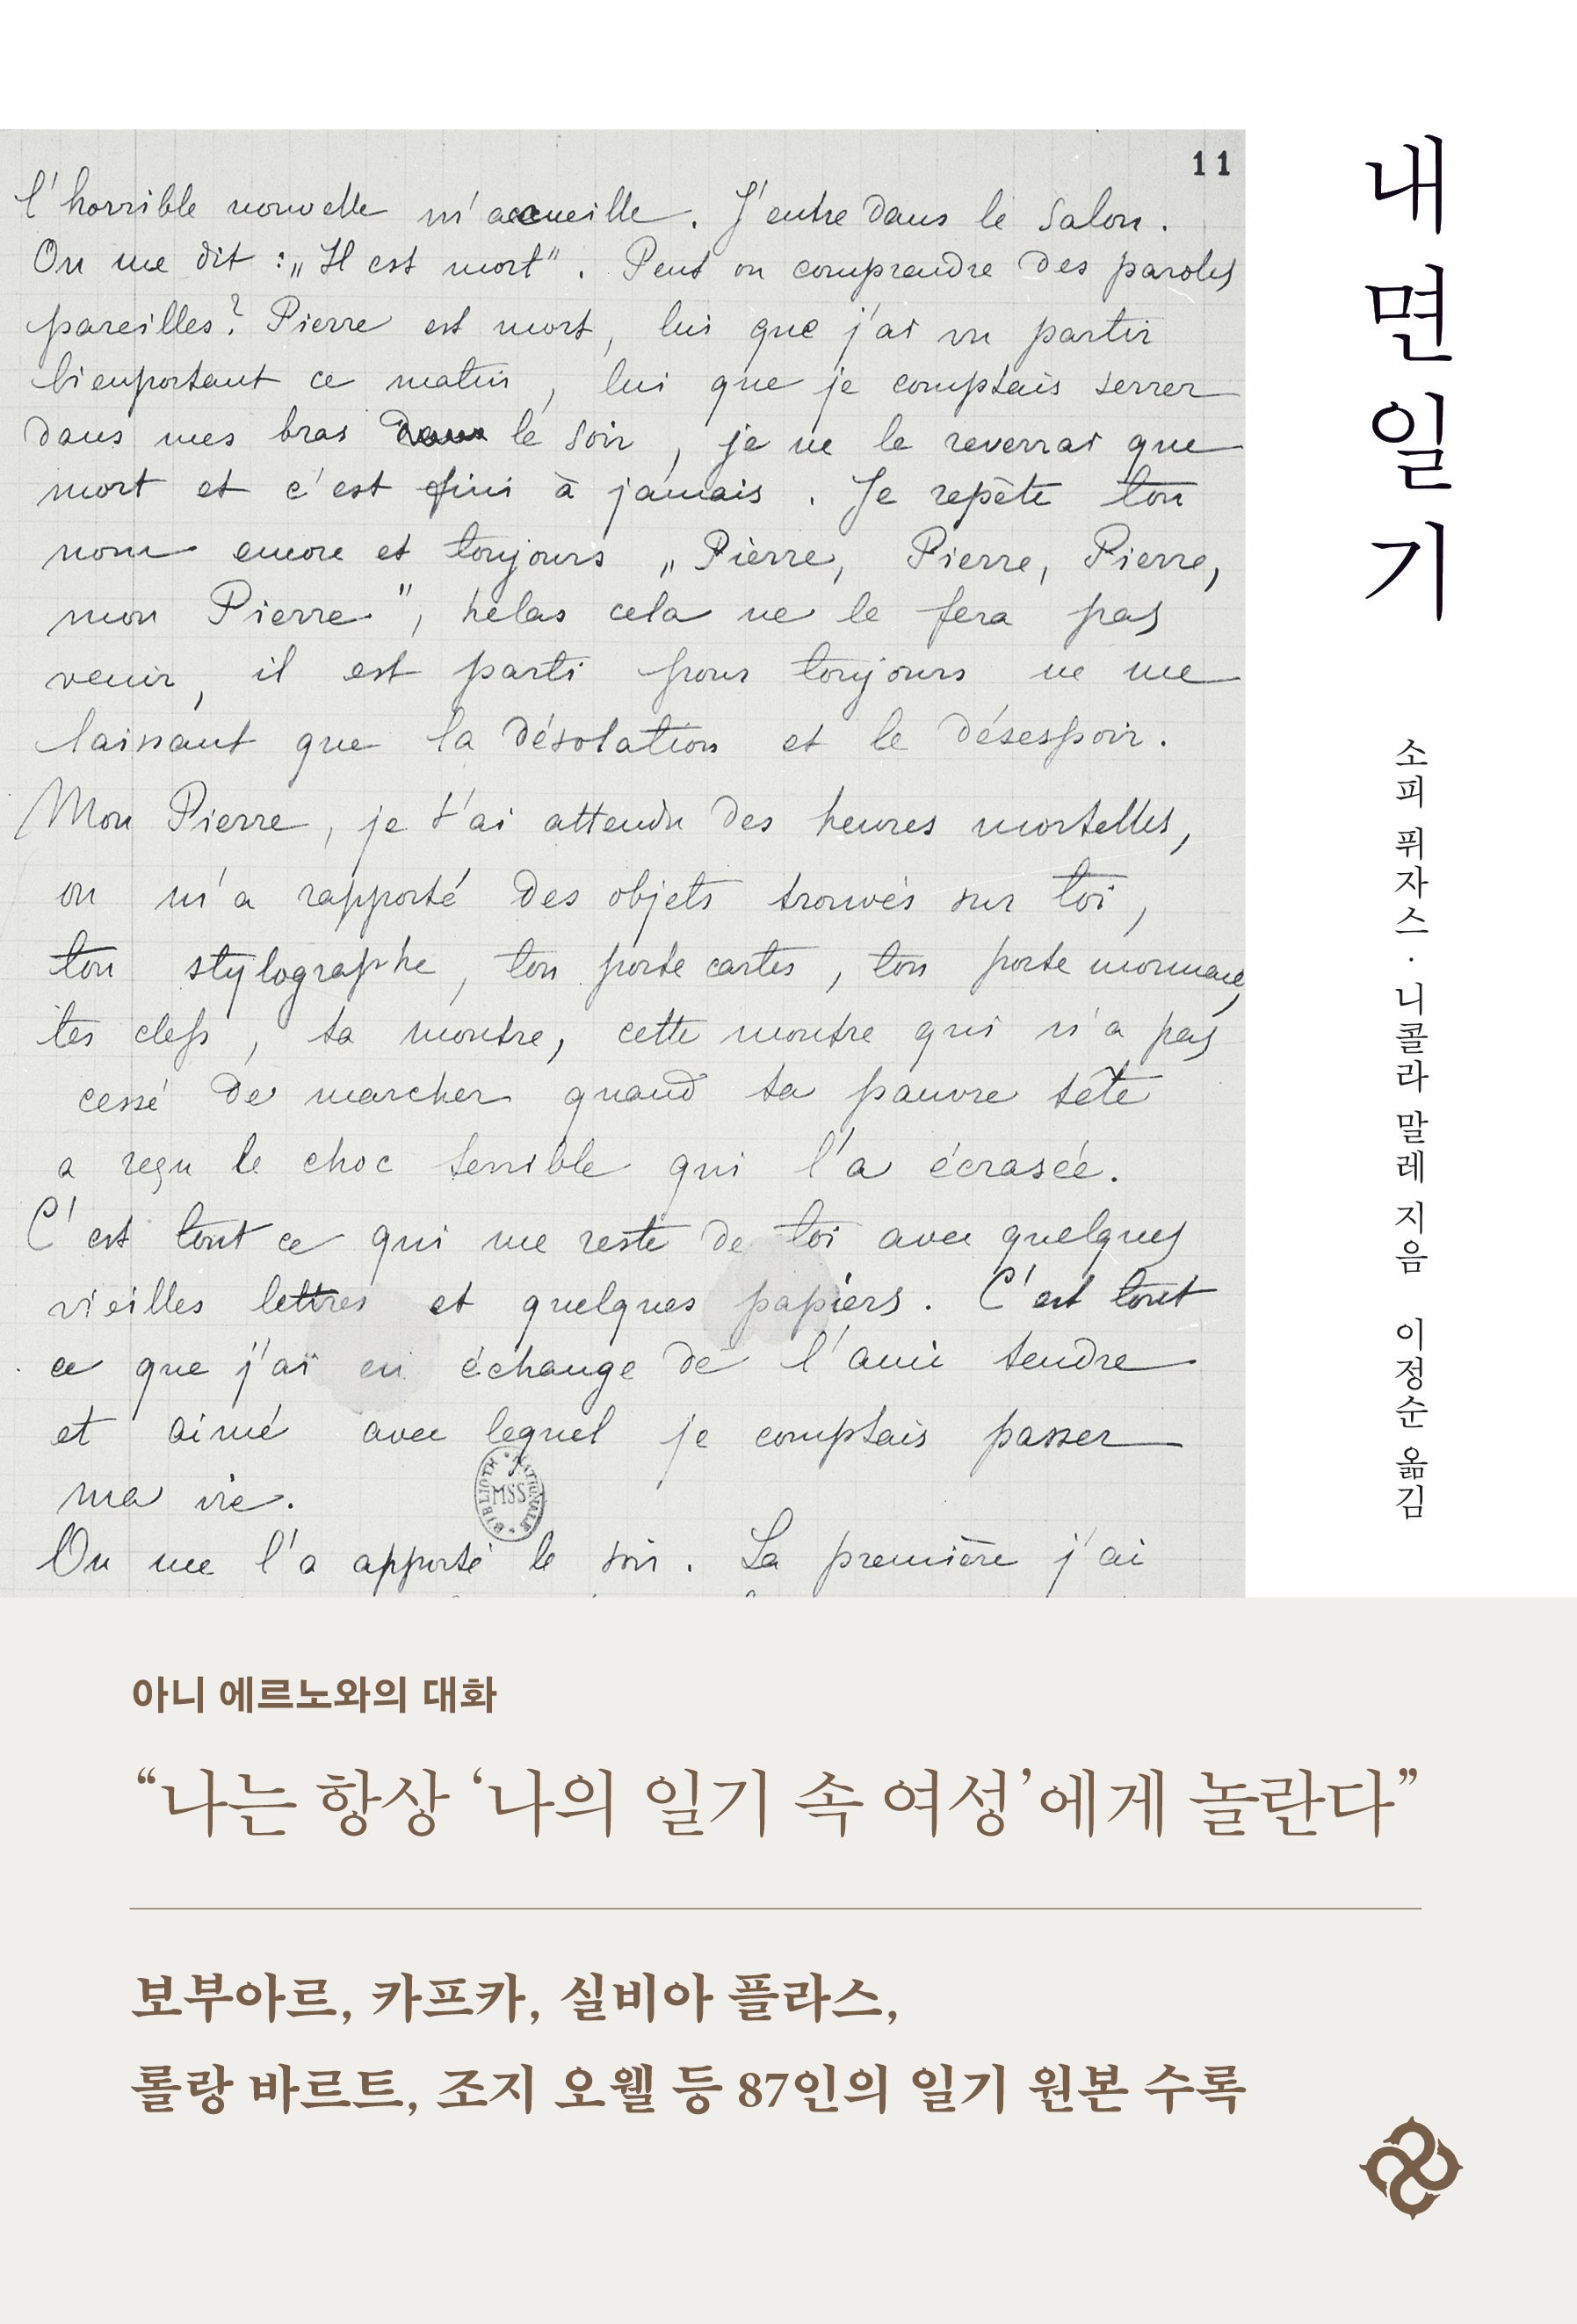 내면일기
소피 퓌자스·니콜라 말레 지음 이정순 옮김
11
l'horrible nouvelle m'accueille. J'entre dans le salon.
On me dit : „Il est mort". Peut on comprendre des paroles
pareilles? Pierre est mort, lui que j'ai vu partir
bienportant ce matin, lui que je comptais serrer
dans mes bras le soir, je ne le reverrai que
mort et c'est fini à jamais. Je repète ton
nom encore et toujours „Pierre, Pierre, Pierre,
mon Pierre", helas cela ne le fera pas
venir, il est parti pour toujours ne me
laissant que la désolation et le désespoir.
Mon Pierre, je t'ai attendu des heures mortelles,
on m'a rapporté des objets trouvés sur toi,
ton stylographe, ton porte cartes, ton porte monnaie,
tes clefs, ta montre, cette montre qui n'a pas
cessé de marcher quand ta pauvre tête
a reçu le choc terrible qui l'a écrasée.
C'est tout ce qui me reste de toi avec quelques
vieilles lettres et quelques papiers. C'est tout
ce que j'ai en échange de l'ami tendre
et aimé avec lequel je comptais passer
ma vie.
BIBLIOTH NATIONALE MSS
On me l'a apporté le soir. La première j'ai
아니 에르노와의 대화
“나는 항상 ‘나의 일기 속 여성’에게 놀란다”
보부아르, 카프카, 실비아 플라스,
롤랑 바르트, 조지 오웰 등 87인의 일기 원본 수록